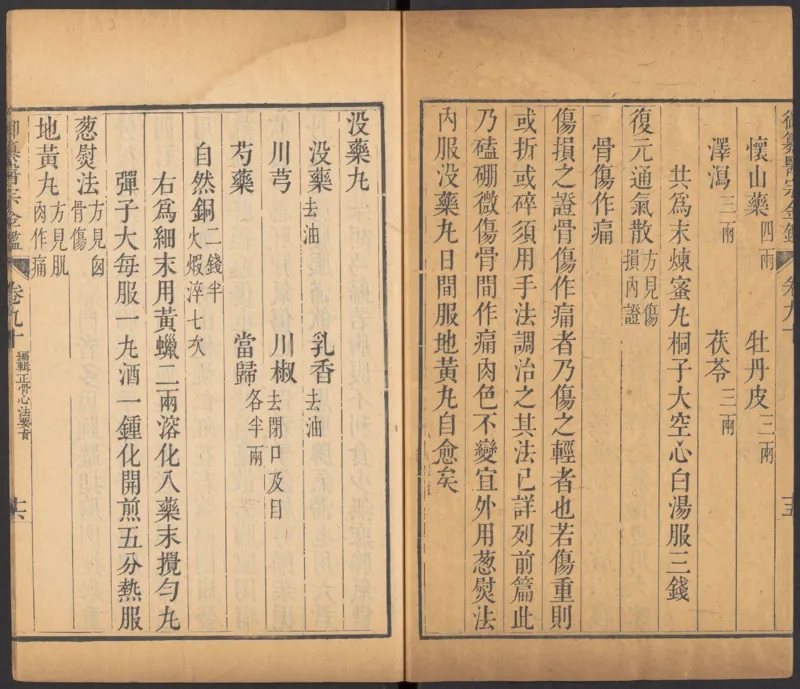 御纂醫宗金鑑 卷九十 十五
懷山藥四兩 牡丹皮三兩
澤瀉三兩 茯苓三兩
共爲末煉蜜丸桐子大空心白湯服三錢
復元通氣散方見傷
損內證
骨傷作痛
傷損之證骨傷作痛者乃傷之輕者也若傷重則
或折或碎須用手法調治之其法已詳列前篇此
乃磕硼微傷骨間作痛肉色不變宜外用葱熨法
內服没藥丸日間服地黃丸自愈矣
没藥丸
没藥去油 乳香去油
川芎 川椒去閉口及目
芍藥 當歸各半兩
自然銅二錢半
火煆淬七次
右爲細末用黃蠟二兩溶化入藥末攪勻丸
彈子大每服一丸酒一鍾化開煎五分熱服
葱熨法方見囟
骨傷
地黃丸方見肌
肉作痛
御纂醫宗金鑑 卷九十 編輯正骨心法要旨 十六